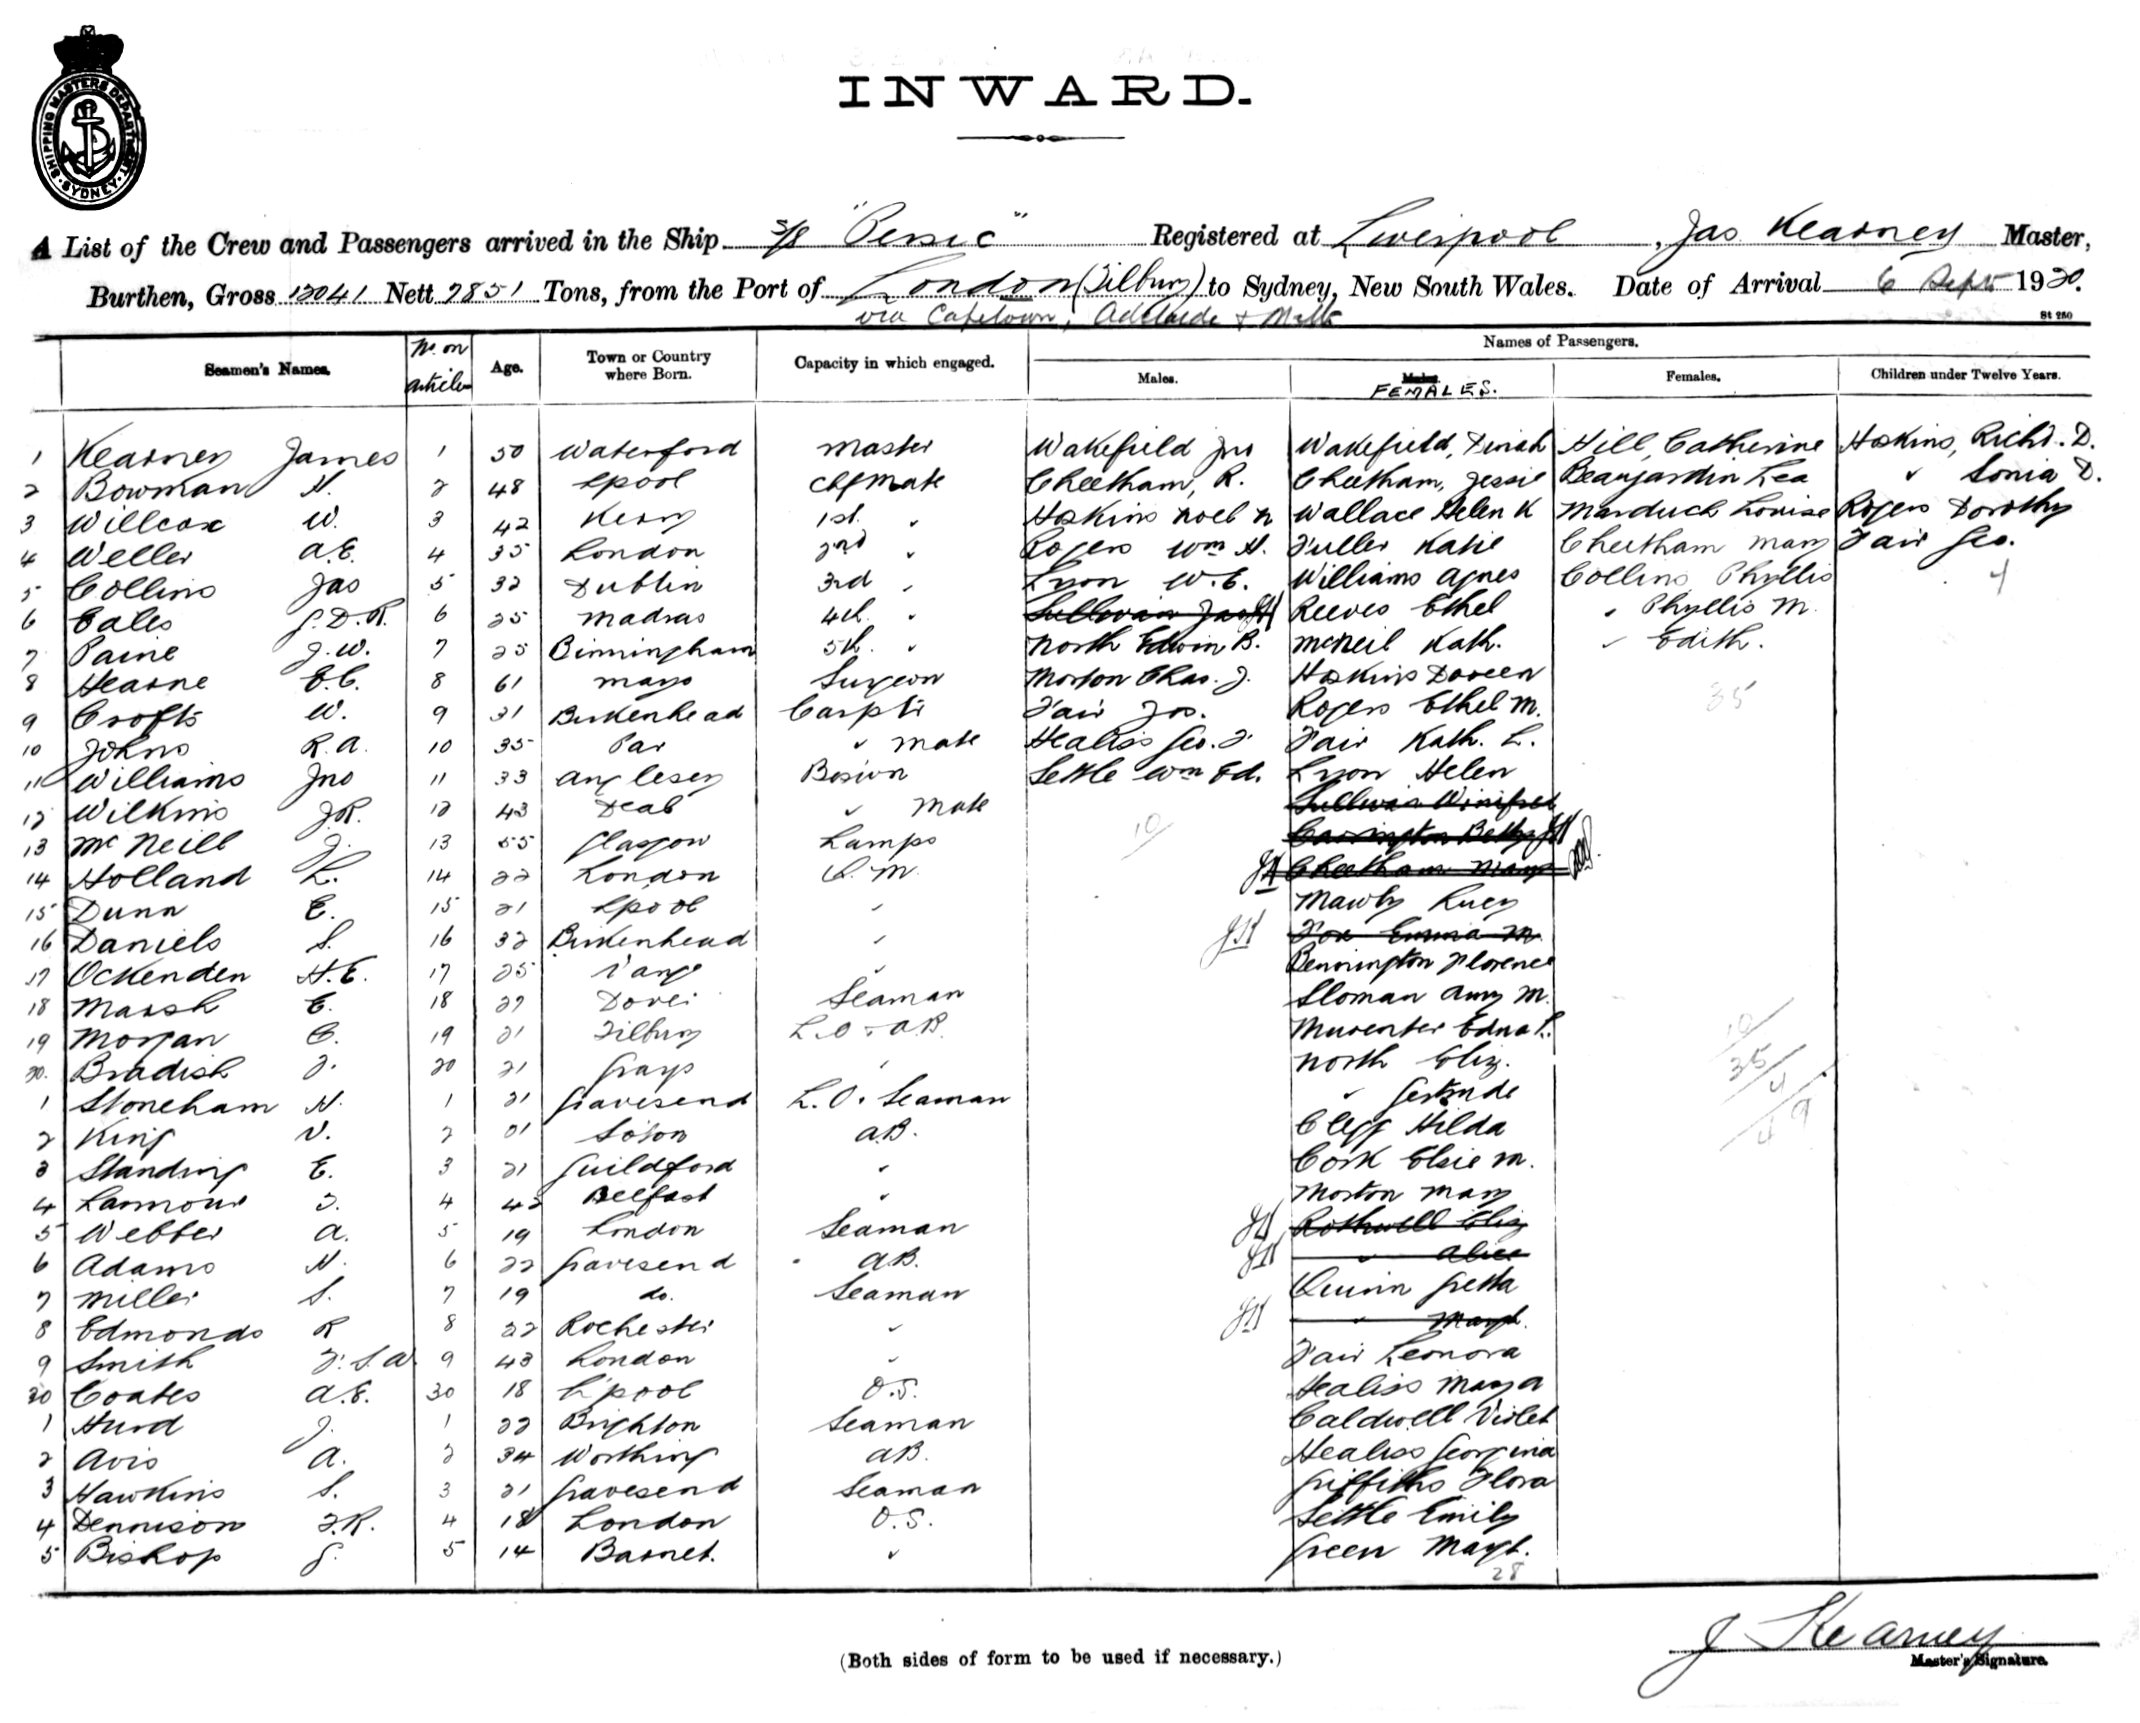 SHIPPING MASTERS DEPARTMENT · SYDNEY ·
INWARD.
A List of the Crew and Passengers arrived in the Ship S/S "Persic" Registered at Liverpool, Jas Kearney Master,
Burthen, Gross 12041 Nett 7851 Tons, from the Port of London (Tilbury) to Sydney, New South Wales. Date of Arrival 6 Sept 1920.
via Capetown, Adelaide & Melb
St 250
Seamen's Names. No. on articles Age. Town or Country where Born. Capacity in which engaged. Names of Passengers.
Males. Males. FEMALES. Females. Children under Twelve Years.
1 Kearney James 1 50 Waterford Master Wakefield Jno Wakefield, Dinah Hill, Catherine Hoskins, Richd. D.
2 Bowman H. 2 48 Lpool Chf Mate Cheetham, R. Cheetham, Jessie Beaujardin Lea " Sonia D.
3 Willcox W. 3 42 Kerry 1st. " Hoskins Noel N Wallace Helen K Marduch Louise Rogers Dorothy
4 Weller A.E. 4 35 London 2nd " Rogers Wm H. Fuller Katie Cheetham Mary Fair Geo.
5 Collins Jas 5 32 Dublin 3rd " Lyon W.E. Williams Agnes Collins Phyllis 4
6 Eales G.D.R. 6 25 Madras 4th. " Sullivan Jas JK Reeves Ethel " Phyllis M.
7 Paine J.W. 7 25 Birmingham 5th. " North Edwin B. McNeil Kath. " Edith.
8 Hearne E.C. 8 61 Mayo Surgeon Morton Chas. J. Hoskins Doreen
9 Crofts W. 9 31 Birkenhead Carptr Fair Jos. Rogers Ethel M. 35
10 Johns R.A. 10 35 Par " Mate Healiss Geo. F Fair Kath. L.
11 Williams Jno 11 33 Anglesey Bosun Settle Wm Ed. Lyon Helen
12 Wilkins J.R. 12 43 Deal " Mate Sullivan Winifred
13 McNeill J. 13 55 Glasgow Lamps 10 Carrington Betty JK
14 Holland L. 14 22 London Q.M. JK Cheetham Mary
15 Dunn E. 15 21 Lpool " Mawby Lucy
16 Daniels S. 16 32 Birkenhead " JK Fox Emma M.
17 Ockenden H.E. 17 25 " Bennington Florence
18 Marsh E. 18 27 Dover Seaman Sloman Amy M.
19 Morgan C. 19 21 Tilbury L.O. & A.B. Edna L. 10
20. Bradish J. 20 21 Grays " North Eliz. 35
1 Stoneham H. 1 21 Gravesend L.O. Seaman " Gertrude 4
2 King V. 2 21 Soton A.B. Clegg Hilda 49
3 Standing E. 3 21 Guildford " Cork Elsie M.
4 Larmour J. 4 42 Belfast " Morton Mary
5 Webber A. 5 19 London Seaman JK Rothwell Eliz
6 Adams H. 6 22 Gravesend A.B. JK " Alice
7 Miller S. 7 19 do. Seaman Quinn Gretta
8 Edmonds R 8 22 Rochester " JK " Margt.
9 Smith F.S.A. 9 43 London " Fair Leonora
30 Coates A.E. 30 18 L'pool O.S. Healiss Mary A
1 Hurd J. 1 22 Brighton Seaman Caldwell Violet
2 Avis A. 2 34 Worthing A.B. Healiss Georgina
3 Hawkins S. 3 21 Gravesend Seaman Griffiths Flora
4 Dennison J.R. 4 18 London O.S. Settle Emily
5 Bishop G. 5 14 Barnet. " Green Margt.
28
J Kearney
Master's Signature.
(Both sides of form to be used if necessary.)